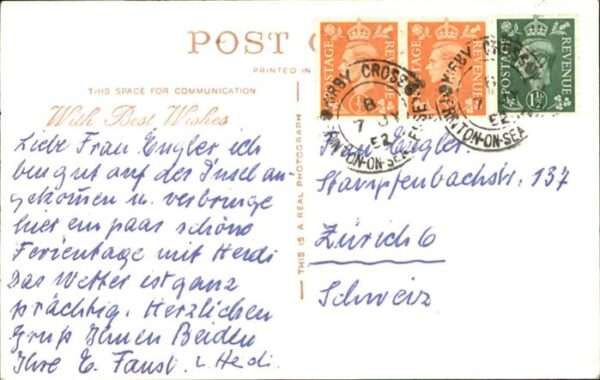 POST C
PRINTED IN
THIS SPACE FOR COMMUNICATION
With Best Wishes
Liebe Frau Engler ich
bin gut auf der Insel an-
gekommen u. verbringe
hier ein paar schöne
Ferientage mit Hedi
Das Wetter ist ganz
prächtig. Herzlichen
Gruß Ihnen Beiden
Ihre E. Faust. u Hedi.
THIS IS A REAL PHOTOGRAPH
POSTAGE REVENUE
POSTAGE REVENUE
POSTAGE REVENUE
1½
KIRBY CROSS
7 JY
FRINTON-ON-SEA
KIRBY CROSS
7
FRINTON-ON-SEA
Frau Engler
Stampfenbachstr. 137
Zürich 6
Schweiz